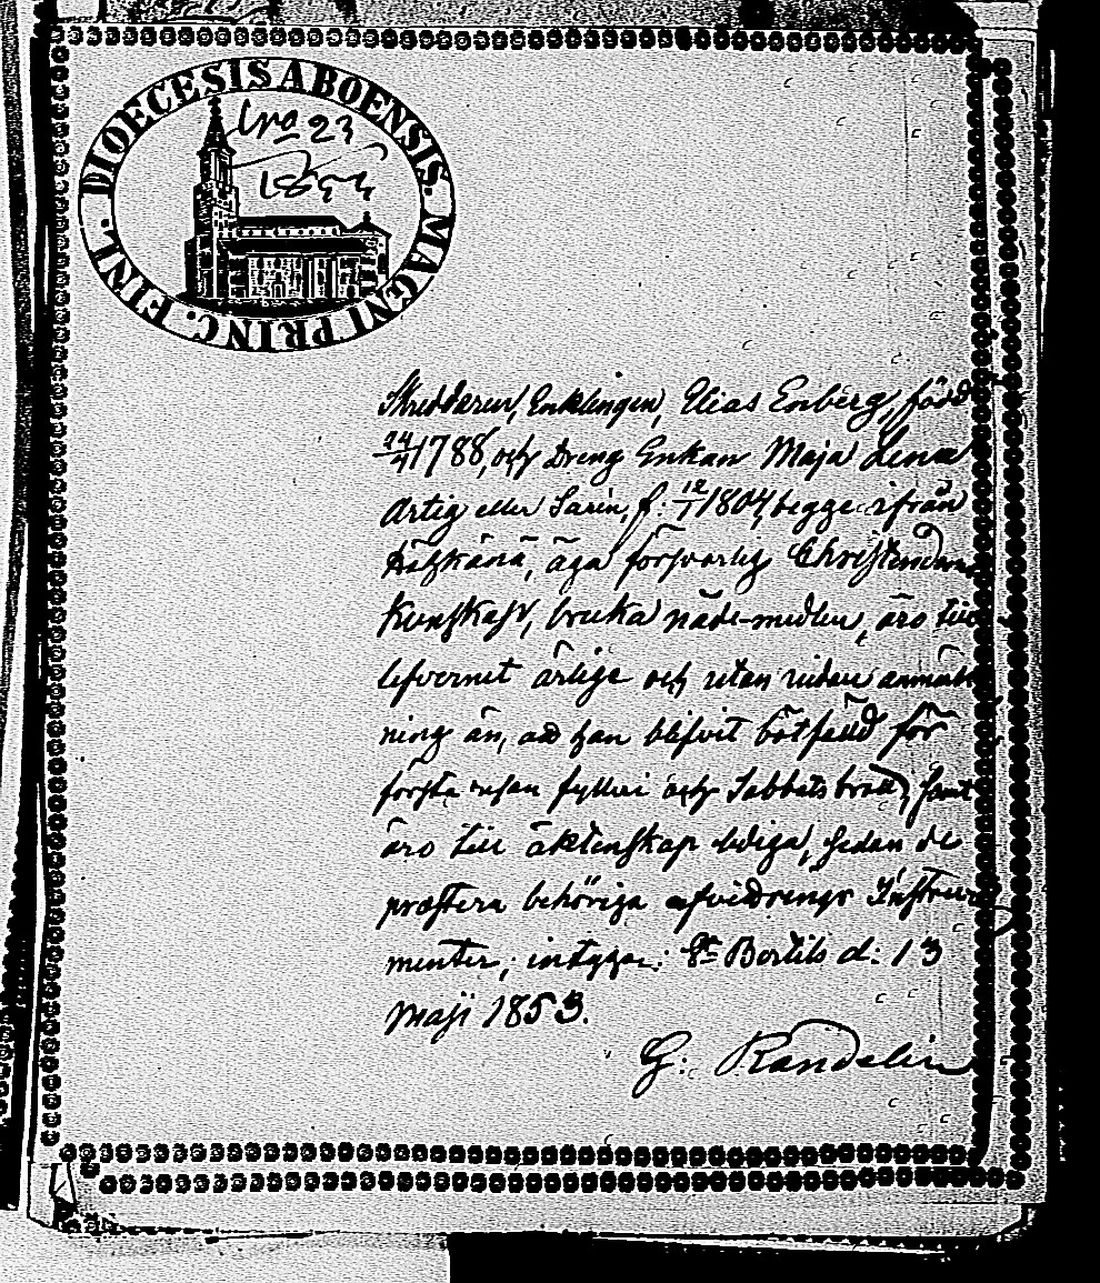 DIOECESIS ABOENSIS. MAGNI PRINC. FINL.
No 23
1853
Skreddaren, Enklingen, Elias Enberg, född
24/4 1788, och Dreng Enkan Maja Lena
Artig eller Sarin, f: 12/1 1804, begge ifrån
äga försvarlig Christendoms
kunskap, bruka nåde-medlen, äro till
lefvernet ärliga och utan vidare anmärk
ning än, att han blifvit bötfälld för
första resan fylleri och Sabbatsbrott, samt
äro till äktenskap lediga, sedan de
præstera behöriga afvidrings Instru
menter, intygar: St Bertils d: 13
Maji 1853.
G: Randelin